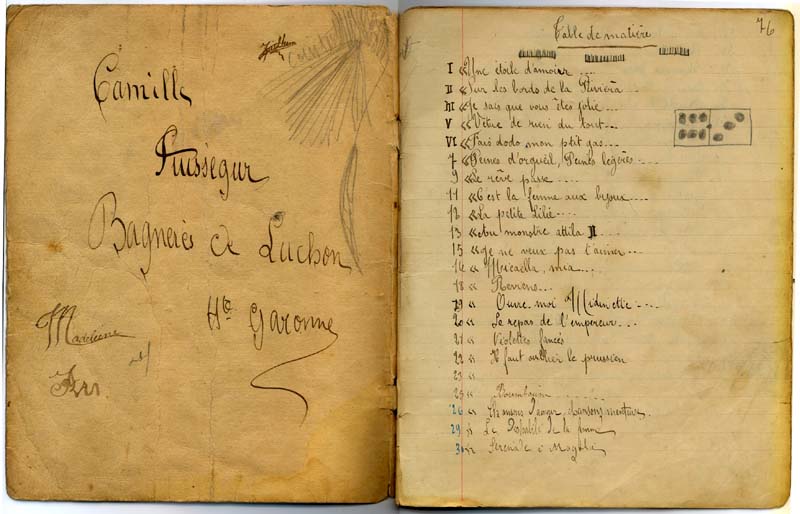 Camille
Puisségur
Bagnères de Luchon
Hte Garonne
Madeleine
76
Table de matière
I « Une étoile d'amour ...
II « Sur les bords de la Riviéra ...
III « Je sais que vous êtes jolie ...
V « Vêtue de rien du tout ...
VI « Fais dodo, mon ptit gas ...
7 « Reines d'orgueil, Reines légères ...
9 « Le rêve passe ...
11 « C'est la femme aux bijoux ...
12 « La petite Lilie ...
13 « Au monstre attila II
15 « Je ne veux pas t'aimer ...
16 « Micaella, mia ...
18 « Reviens ...
19 « Ouvre-moi Midinette ...
20 « Le repas de l'empereur ...
21 « Violettes fanées
22 « Il faut oublier le prussien
23 «
25 «
26 «
29 « Le de la
30 « Sérénade à Magali